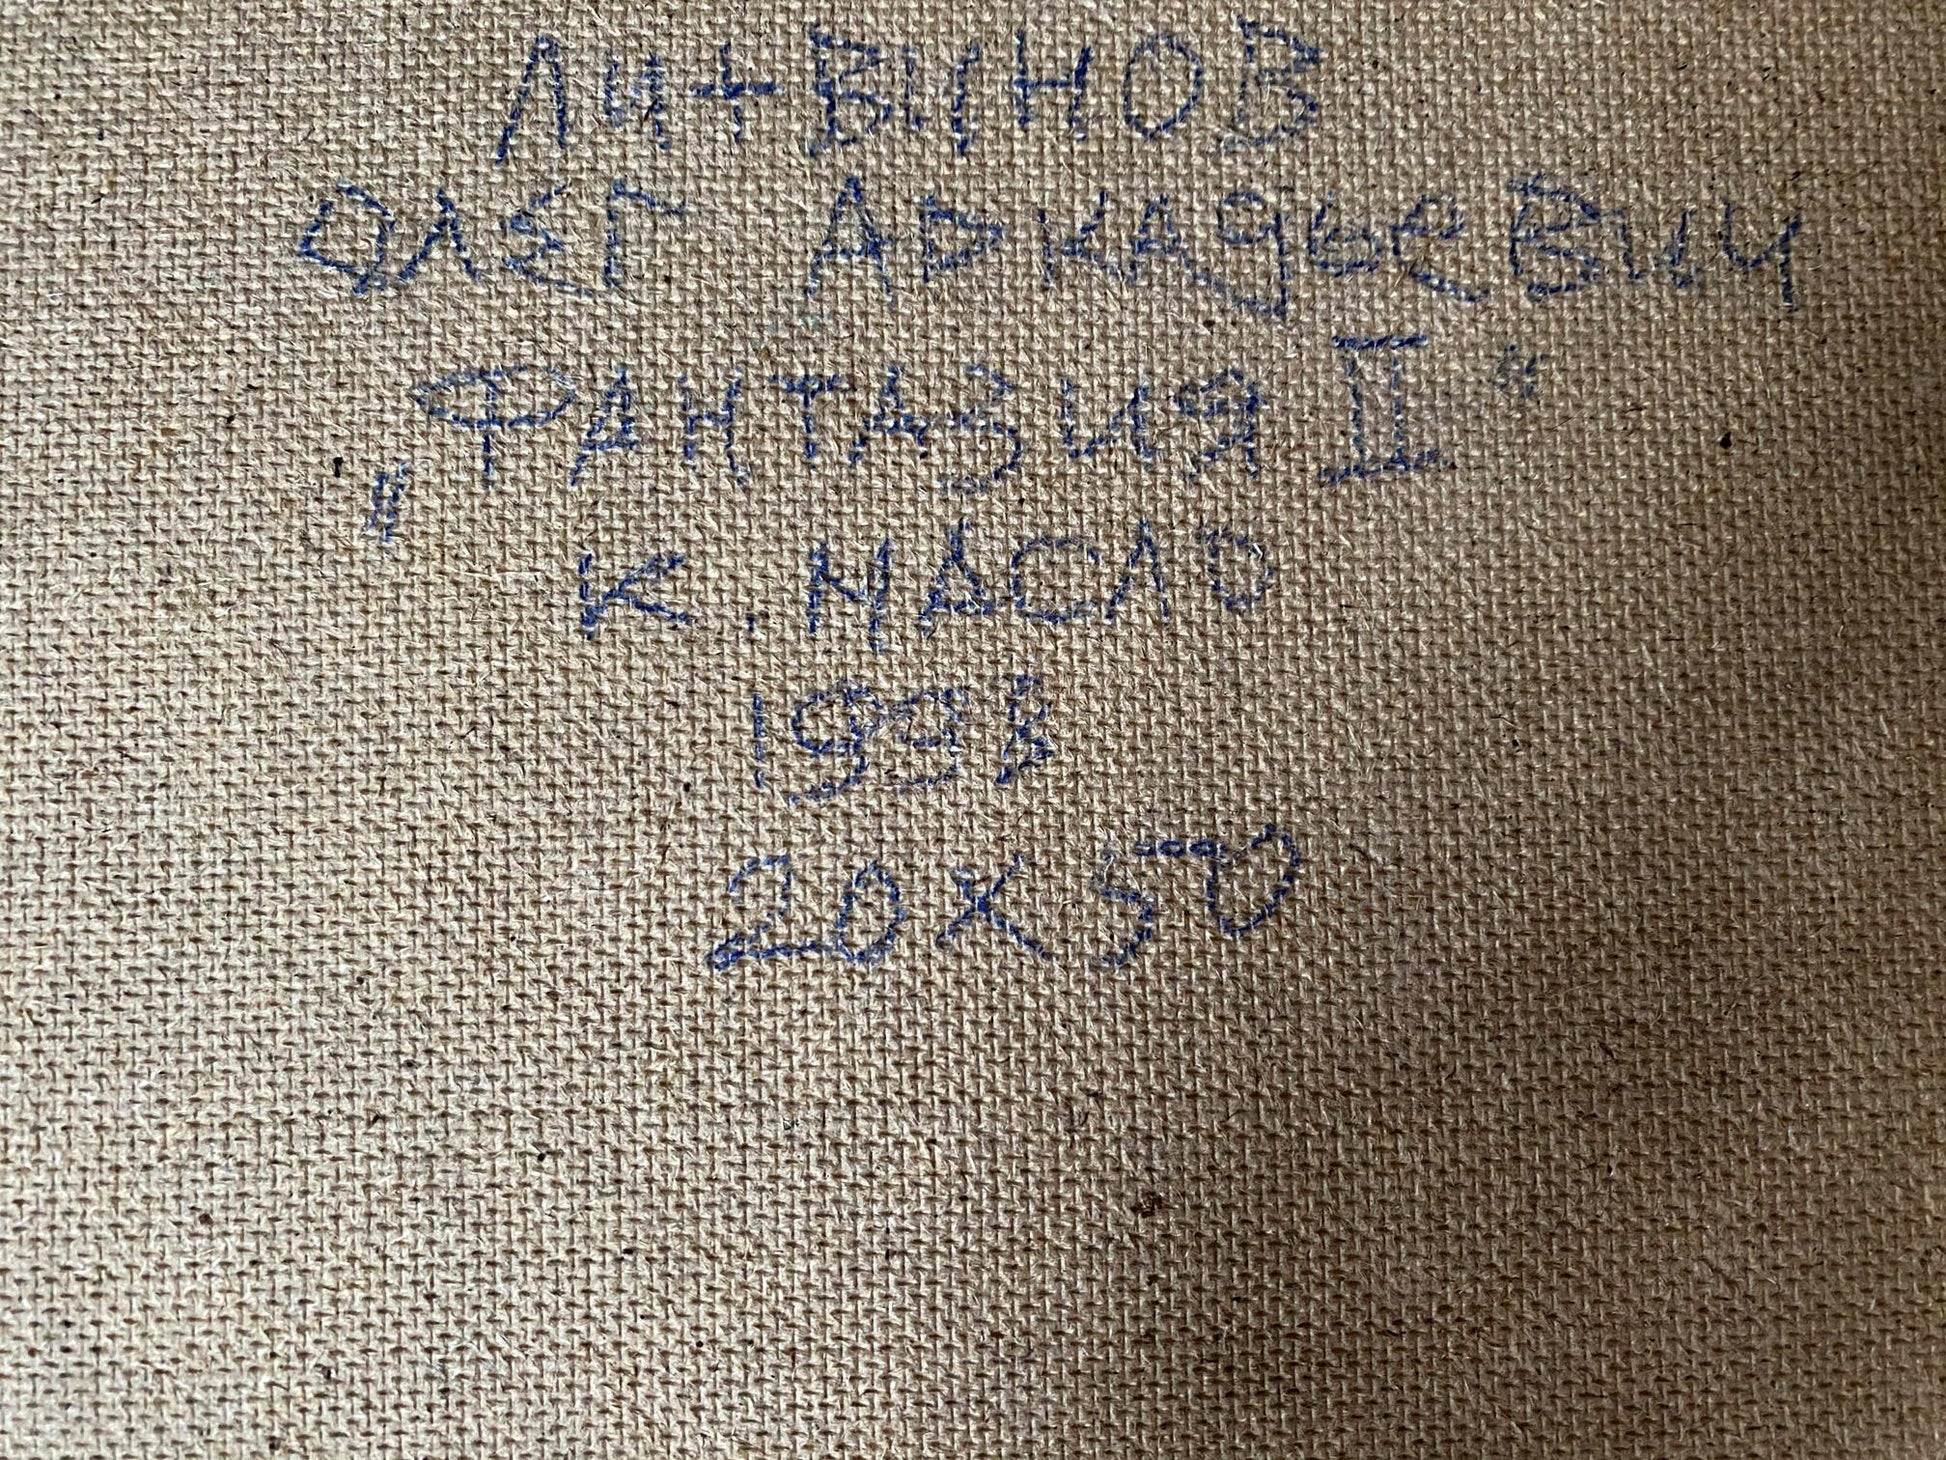 Литвинов
Олег Аркадьевич
„Фантазия II“
К. Масло
1996
20х50